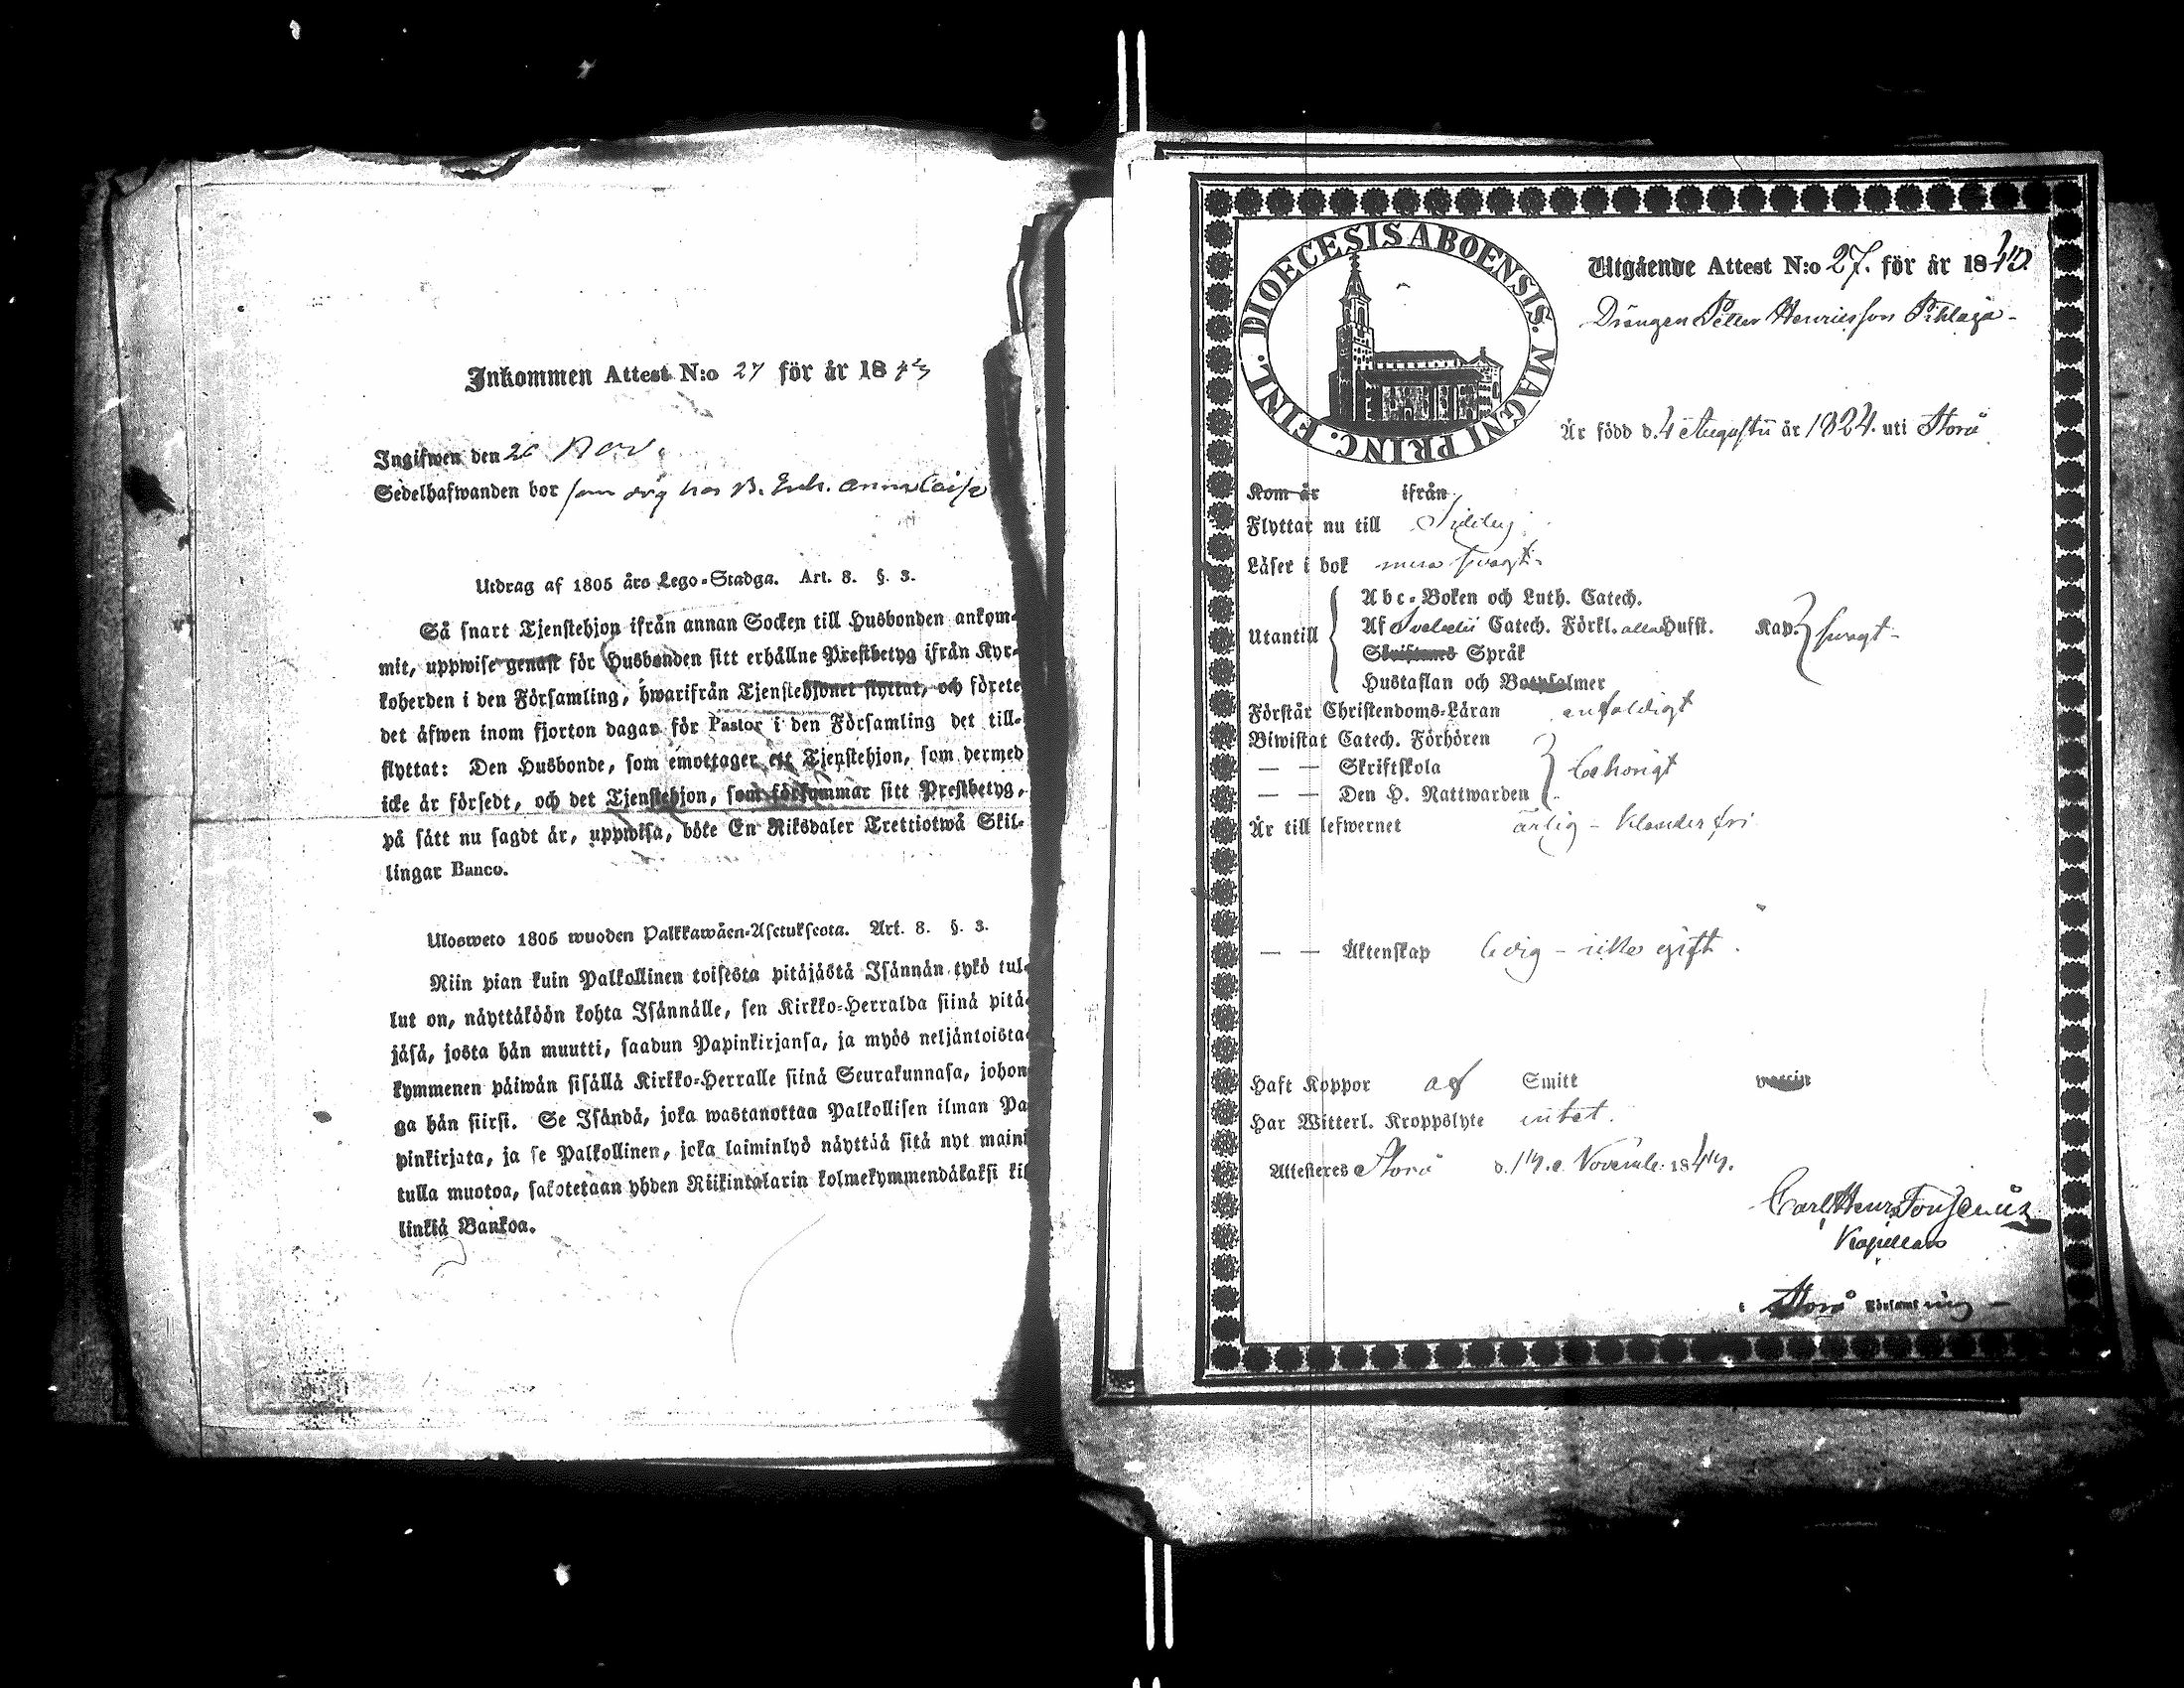 Inkommen Attest N:o 27 för år 18
Ingifwen den 26 Nov.
Sedelhafwanden bor som drg hos B. Enk. Anna Caisa
Utdrag af 1805 års Lego-Stadga. Art. 8. §. 3.
Så snart Tjenstehjon ifrån annan Socken till Husbonden ankom-
mit, uppwise genast för Husbonden sitt erhållne Prestbetyg ifrån Kyr-
koherden i den Församling, hwarifrån Tjenstehjonet flyttat, och förete
det äfwen inom fjorton dagar för Pastor i den Församling det till-
flyttat: Den Husbonde, som emottager ett Tjenstehjon, som dermed
icke är försedt, och det Tjenstehjon, som försummar sitt Prestbetyg,
på sätt nu sagdt är, uppwisa, böte En Riksdaler Trettiotwå Skil-
lingar Banco.
Ulosweto 1805 wuoden Palkkawäen-Asetuksesta. Art. 8. §. 3.
Niin pian kuin Palkollinen toisesta pitäjästä Isännän tykö tul-
lut on, näyttäköön kohta Isännälle, sen Kirkko-Herralda siinä pitä-
jäsä, josta hän muutti, saadun Papinkirjansa, ja myös neljäntoista-
kymmenen päiwän sisällä Kirkko-Herralle siinä Seurakunnasa, johon-
ga hän siirsi. Se Isändä, joka wastanottaa Palkollisen ilman Pa-
pinkirjata, ja se Palkollinen, joka laiminlyö näyttää sitä nyt maini
tulla muotoa, sakotetaan yhden Riikintalarin kolmekymmendäkaksi kil
linkiä Bankoa.
DIOECESIS ABOENSIS. MAGNI PRINC. FINL.
Utgående Attest N:o 27. för år 18
Drängen Petter Henriksson Pihlaja
Är född d. 4 Augusti år 1824. uti Storå
Kom år ifrån
Flyttar nu till Sideby
Läser i bok swagt
Abc-Boken och Luth. Catech.
Utantill Af Svebelii Catech. Förkl. Husft. Kap. swagt
Skriftenes Språk
Hustaflan och Botpsalmer
Förstår Christendoms-Läran enfaldigt
Biwistat Catech. Förhören
— — Skriftskola behörigt
— — Den H. Nattwarden
Är till lefwernet ärlig - klanderfri
— — Äktenskap ledig - icke gift.
Haft Koppor af Smitt vaccin
Har Witterl. Kroppslyte intet.
Attesteras Storå d. November 18
Carl Henr. Forssenius
Kapellan
i Storå Församling